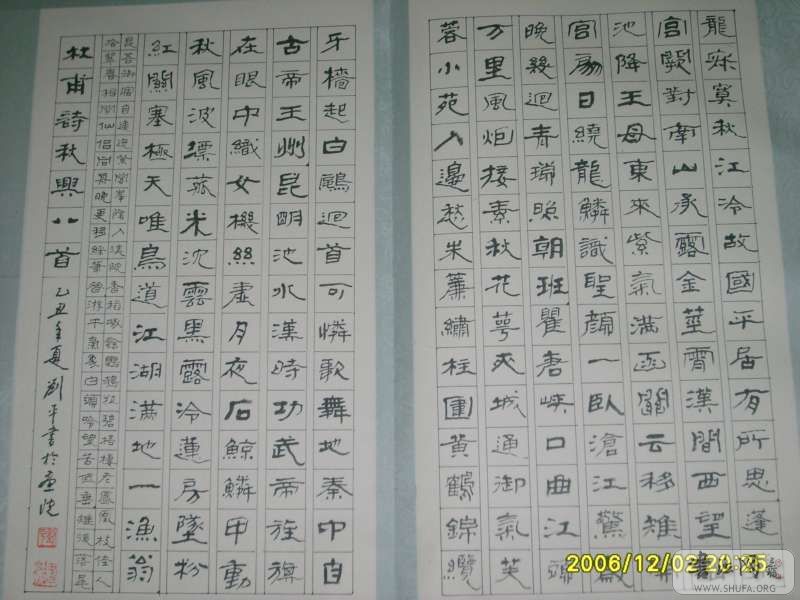 龍寂寞秋江冷故國平居有所思蓬
宮闕對南山承露金莖霄漢間西望
池降王母東來紫氣滿函關云移雉
宮扇日繞龍鱗識聖顏一臥滄江驚歲
晚幾迴青瑣照朝班瞿唐峽口曲江頭
万里風烟接素秋花萼夾城通御氣芙
蓉小苑入邊愁朱簾繡柱圍黃鶴錦纜
牙檣起白鷗迴首可憐歌舞地秦中自
古帝王州昆明池水漢時功武帝旌旗
在眼中織女機絲虛月夜石鯨鱗甲動
秋風波漂菰米沈雲黑露冷蓮房墜粉
紅關塞極天唯鳥道江湖滿地一漁翁
昆吾御宿自逶迤紫閣峯陰入渼陂香稻啄餘鸚鵡粒碧梧棲老鳳凰枝佳人
拾翠春相問仙侶同舟晚更移綵筆昔游干氣象白頭吟望苦低垂雉後落尾
杜甫詩秋興八首
乙丑年夏劉平書於
2006/12/02 20:25
WWW.SHUFA.ORG